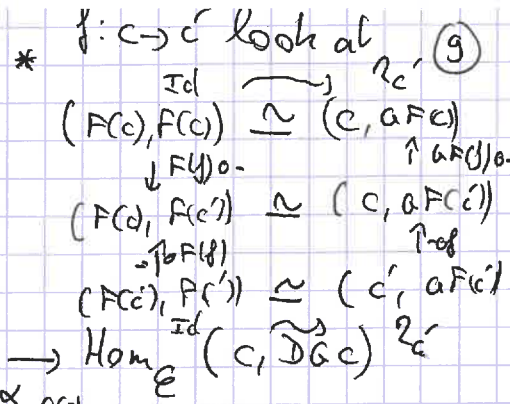 * f: c → c' look at ⑨
Id η_c'
(F(c), F(c)) ≃ (c, GF(c))
↓ F(f)∘- ↑ GF(f)∘-
(F(c), F(c')) ≃ (c, GF(c'))
-↑∘F(f) ↑-∘f
(F(c'), F(c')) ≃ (c', GF(c'))
Id η_c'
→ Hom_ℰ (c, DGc)